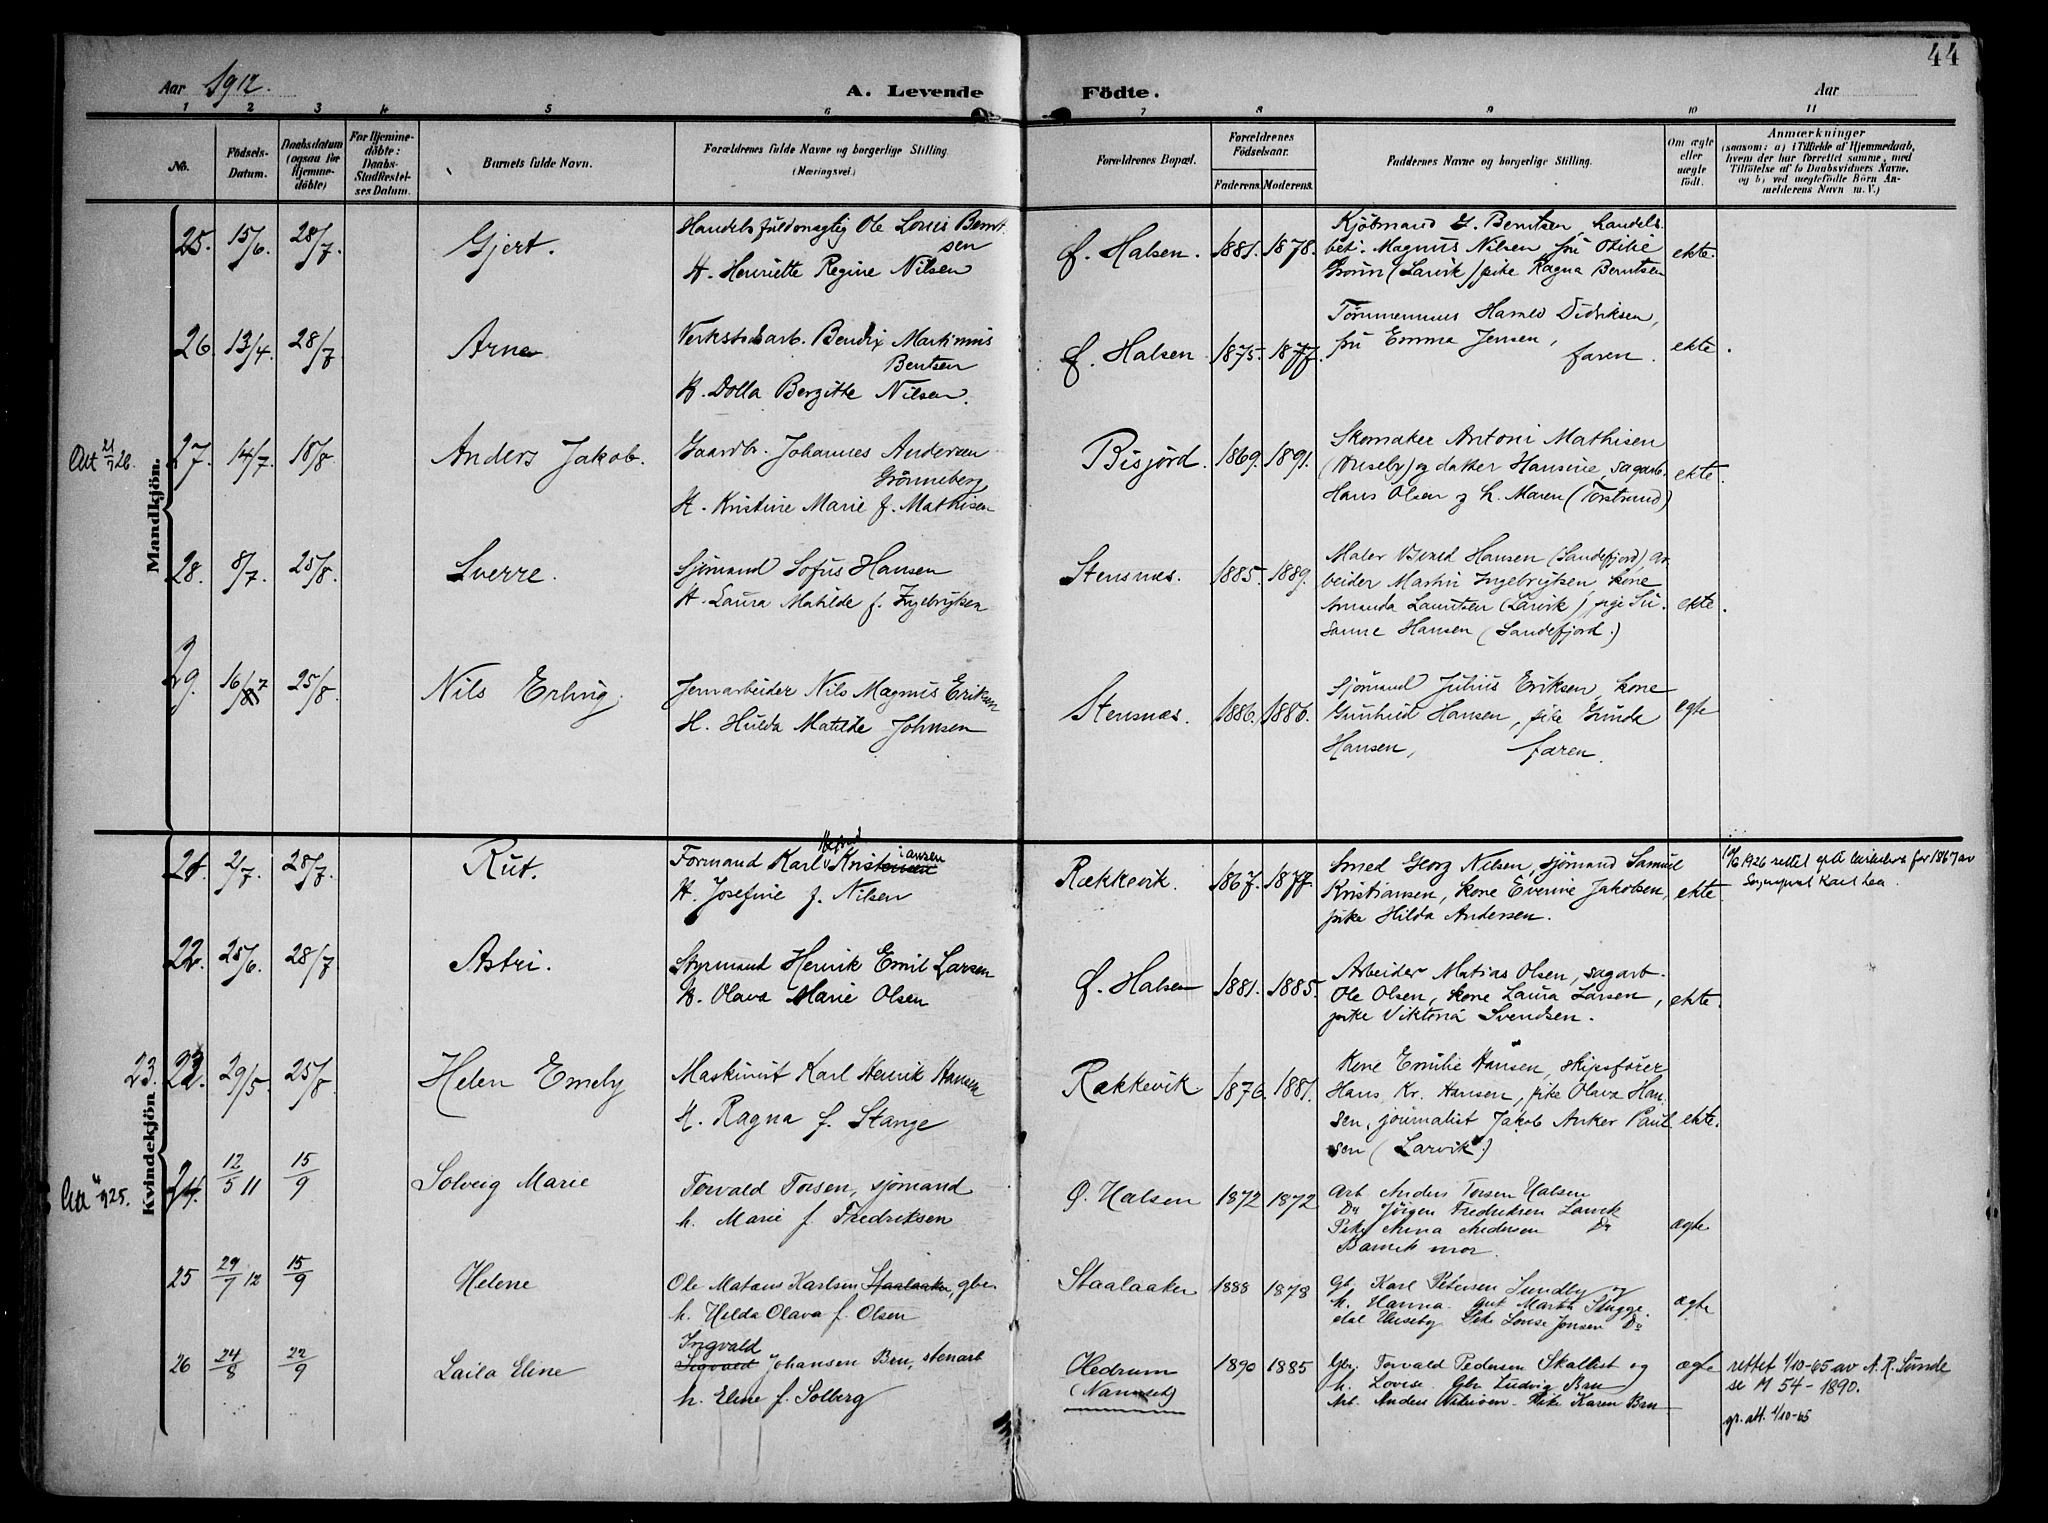 44
Aar 1912.
A. Levende Födte.
Aar
1 2 3 4 5 6 7 8 9 10 11
No.
Födsels-Datum.
Daabsdatum (ogsaa for Hjemmedöbte)
For Hjemmedöbte: Daabs-Stadfestelses Datum.
Barnets fulde Navn.
Forældrenes fulde Navne og borgerlige Stilling. (Næringsvei.)
Forældrenes Bopæl.
Forældrenes Födselsaar.
Faderens. Moderens.
Faddernes Navne og borgerlige Stilling.
Om ægte eller uægte födt.
Anmærkninger
(saasom: a) i Tilfælde af Hjemmedaab, hvem der har forrettet samme, med Tilföielse af to Daabsvidners Navne, og b) ved uægtefödte Börn Anmelderens Navn m. V.)
Mandkjön.
25. 15/6. 28/7. Gjert.
Handelsfuldmægtig Ole Louis Berntsen
H. Henriette Regine Nilsen
Ø. Halsen. 1881. 1878.
Kjöbmand G. Berntsen, handels-
bet. Magnus Nilsen fru Otilie
Grönn (Larvik) pike Ragna Berntsen
ekte.
26. 13/4. 28/7 Arne
Verkstedsarb. Bendix Martinius
Bentsen
H. Dolla Bergitte Nilsen.
Ø. Halsen 1875. 1877.
Tömmermus Harald Didriksen,
fru Emma Jensen,
faren. ekte.
27. 14/7. 18/8. Anders Jakob.
Gaardbr. Johannes Andersen
Grönneberg
H. Kristine Marie f. Mathisen
Bisjörd. 1869. 1891.
Skomaker Antoni Mathisen
(Huseby) og datter Hansine, sagarb.
Hans Olsen og h. Maren (Torstrand)
ekte.
28. 8/7. 25/8. Sverre.
Sjömand Sofus Hansen
H. Laura Matilde f. Ingebrigtsen
Stensnæs. 1885. 1889.
Maler Hansen (Sandefjord), ar-
beider Martin Ingebrigtsen, kone
Amanda Lauritsen (Larvik), pige Su-
sanne Hansen (Sandefjord.)
ekte.
29. 16/7 25/8. Nils Erling.
Jernarbeider Nils Magnus Eriksen
H. Hulda Matilde Johnsen
Stensnæs. 1886. 1886.
Sjömand Julius Eriksen, kone
Gunhild Hansen, pike Gunda
Hansen, faren.
egte
Kvindekjön
21. 2/7. 28/7. Rut.
Formand Karl Kristiansen
H. Josefine f. Nilsen
Rækkevik. 1867. 1877.
Smed Georg Nilsen, sjömand Samuel
Kristiansen, kone Evenine Jakobsen,
pike Hilda Andersen.
ekte.
1926 rettet for 1867 av
Sogneprest Karl Lea.
22. 25/6. 28/7 Astri.
Styrmand Henrik Emil Larsen
H. Olava Marie Olsen
Ø. Halsen 1881. 1885.
Arbeider Matias Olsen, sagarb.
Ole Olsen, kone Laura Larsen,
pike Viktoria Svendsen.
ekte.
23. 29/5. 25/8 Helen Emely
Maskinist Karl Henrik Hansen
H. Ragna f. Stange
Rækkevik 1876. 1881.
Kone Emilie Hansen, skipsförer
Hans Kr. Hansen, pike Olava Han-
sen, journalist Jakob Anker Paul-
sen (Larvik.)
ekte.
24. 12/5 11 15/9 Solveig Marie
Torvald Torsen, sjömand
h. Marie f. Fredriksen
Ø. Halsen 1872 1872
Arb Anders Torsen Halsen
Do Jörgen Fredriksen Larvik
Pike Anna Andersen Do
Barnets mor.
ægte
25 29/7 12 15/9 Helene
Ole Mataus Karlsen Staalaaker, gbr.
h. Helda Olava f. Olsen
Staalaaker 1888 1878
Gb. Karl Petersen Sundby og
h. Hanna. Martin Skugge-
dal Huseby Pike Lovise Jonsen Do
ægte
26 24/8 22/9 Laila Eline
Ingvald
Sigvald Johansen Bru, stenarb
h. Eline f. Solberg
Hedrum
(Nanset)
1890 1885
Gbr. Torvald Pedersen Skallist og
h. Lovise Gbr Ludvig Bru
Arb. Anders Pike Karen Bru
ægte
rettet 1/10-65 av A. R. Sunde
se M 54-1890.
gr. att. 1/10-65